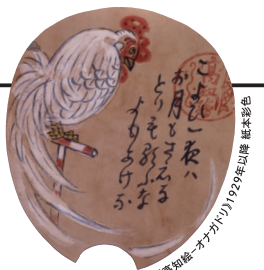 こよひ一夜ハ
お月も
とりも ふな
よもあけな
知絵−オナガドリ》1929年以降 紙本彩色